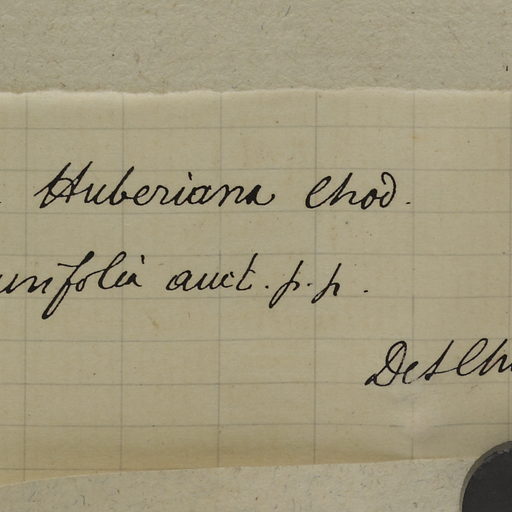 Huberiana Chod.
unifolia auct. p. p.
Det Ch